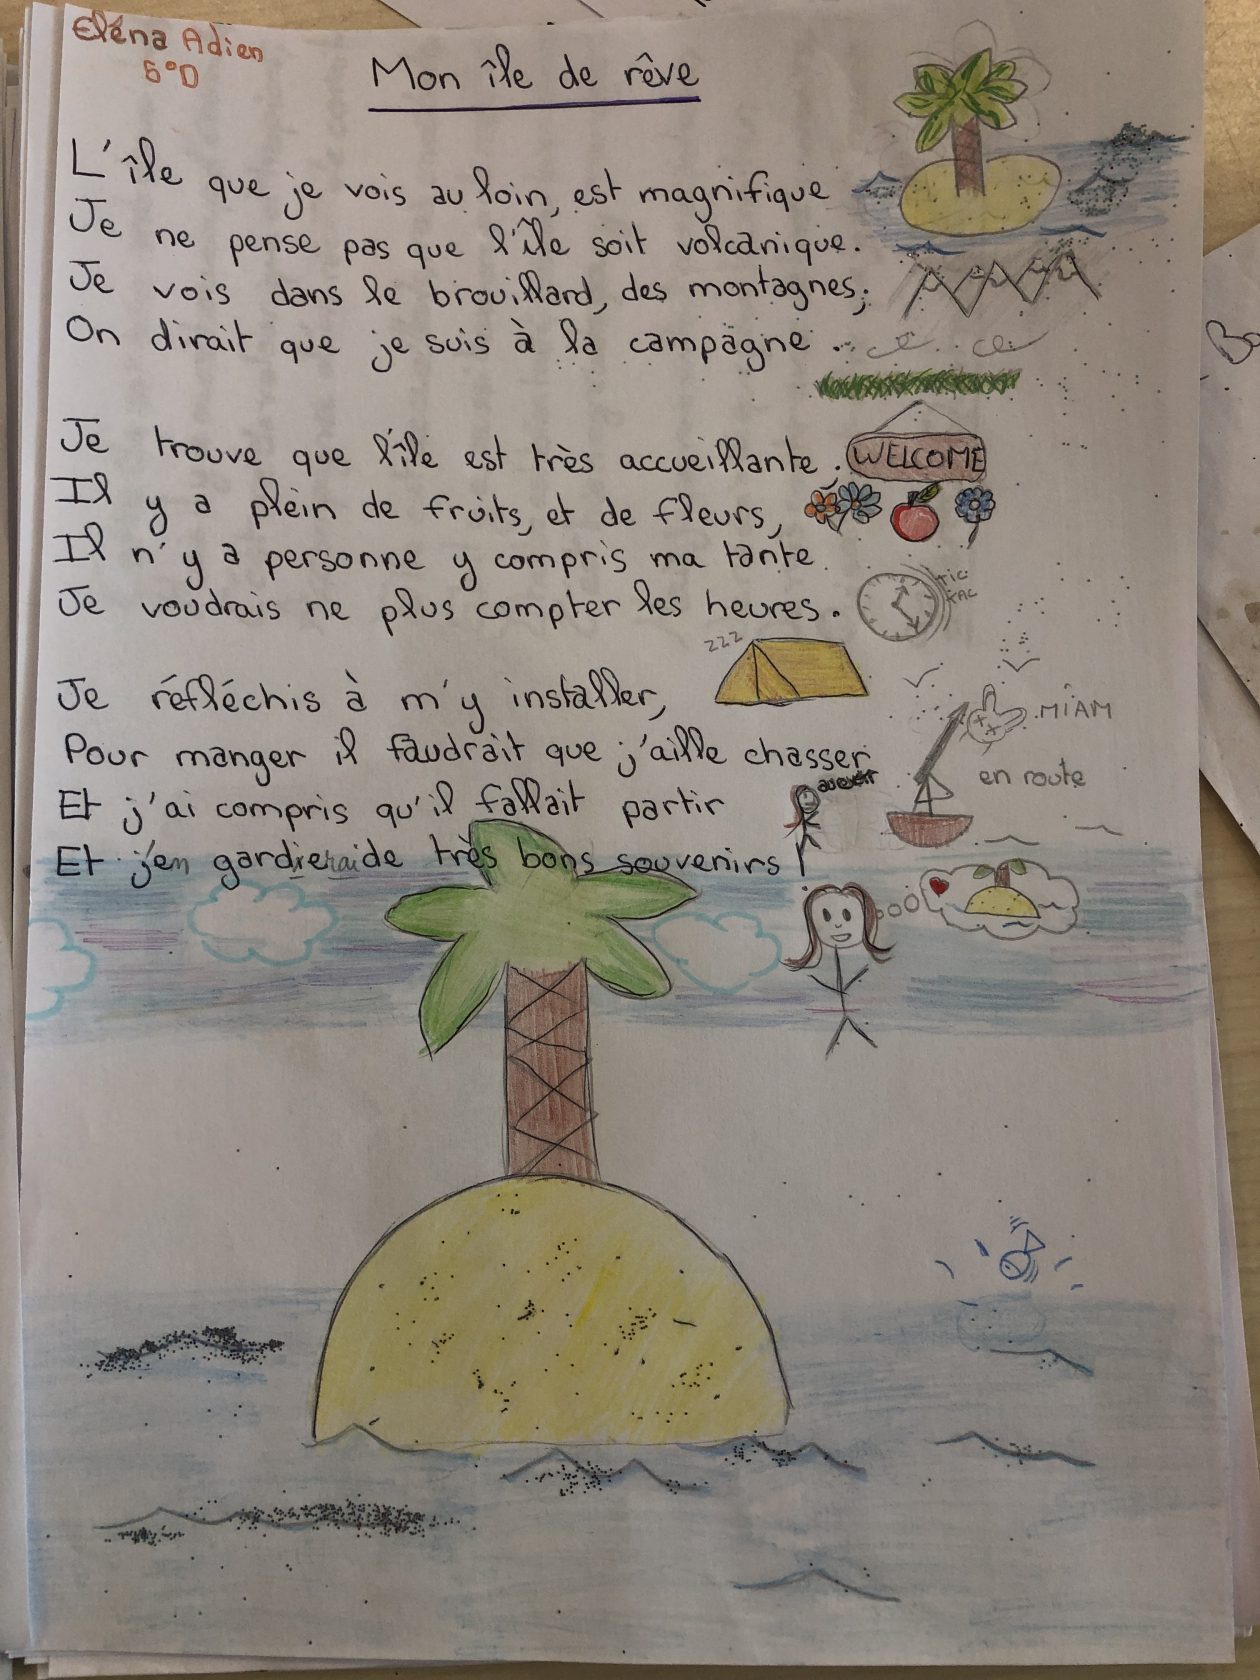 Eléna Adien
5°D
Mon île de rêve
L'île que je vois au loin, est magnifique
Je ne pense pas que l'île soit volcanique.
Je vois dans le brouillard, des montagnes,
On dirait que je suis à la campagne.
Je trouve que l'île est très accueillante.
WELCOME
Il y a plein de fruits, et de fleurs,
Il n'y a personne y compris ma tante
Je voudrais ne plus compter les heures.
TIC
TAC
zzz
Je réfléchis à m'y installer,
MIAM
Pour manger il faudrait que j'aille chasser
en route
Et j'ai compris qu'il fallait partir
Et j'en garderai de très bons souvenirs !